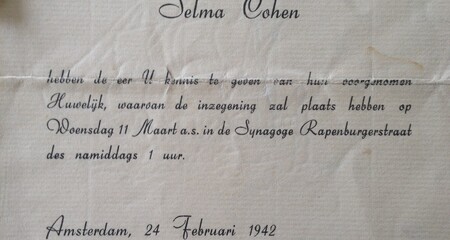 Selma Cohen
hebben de eer U kennis te geven van hun voorgenomen
Huwelijk, waarvan de inzegening zal plaats hebben op
Woensdag 11 Maart a.s. in de Synagoge Rapenburgerstraat
des namiddags 1 uur.
Amsterdam, 24 Februari 1942